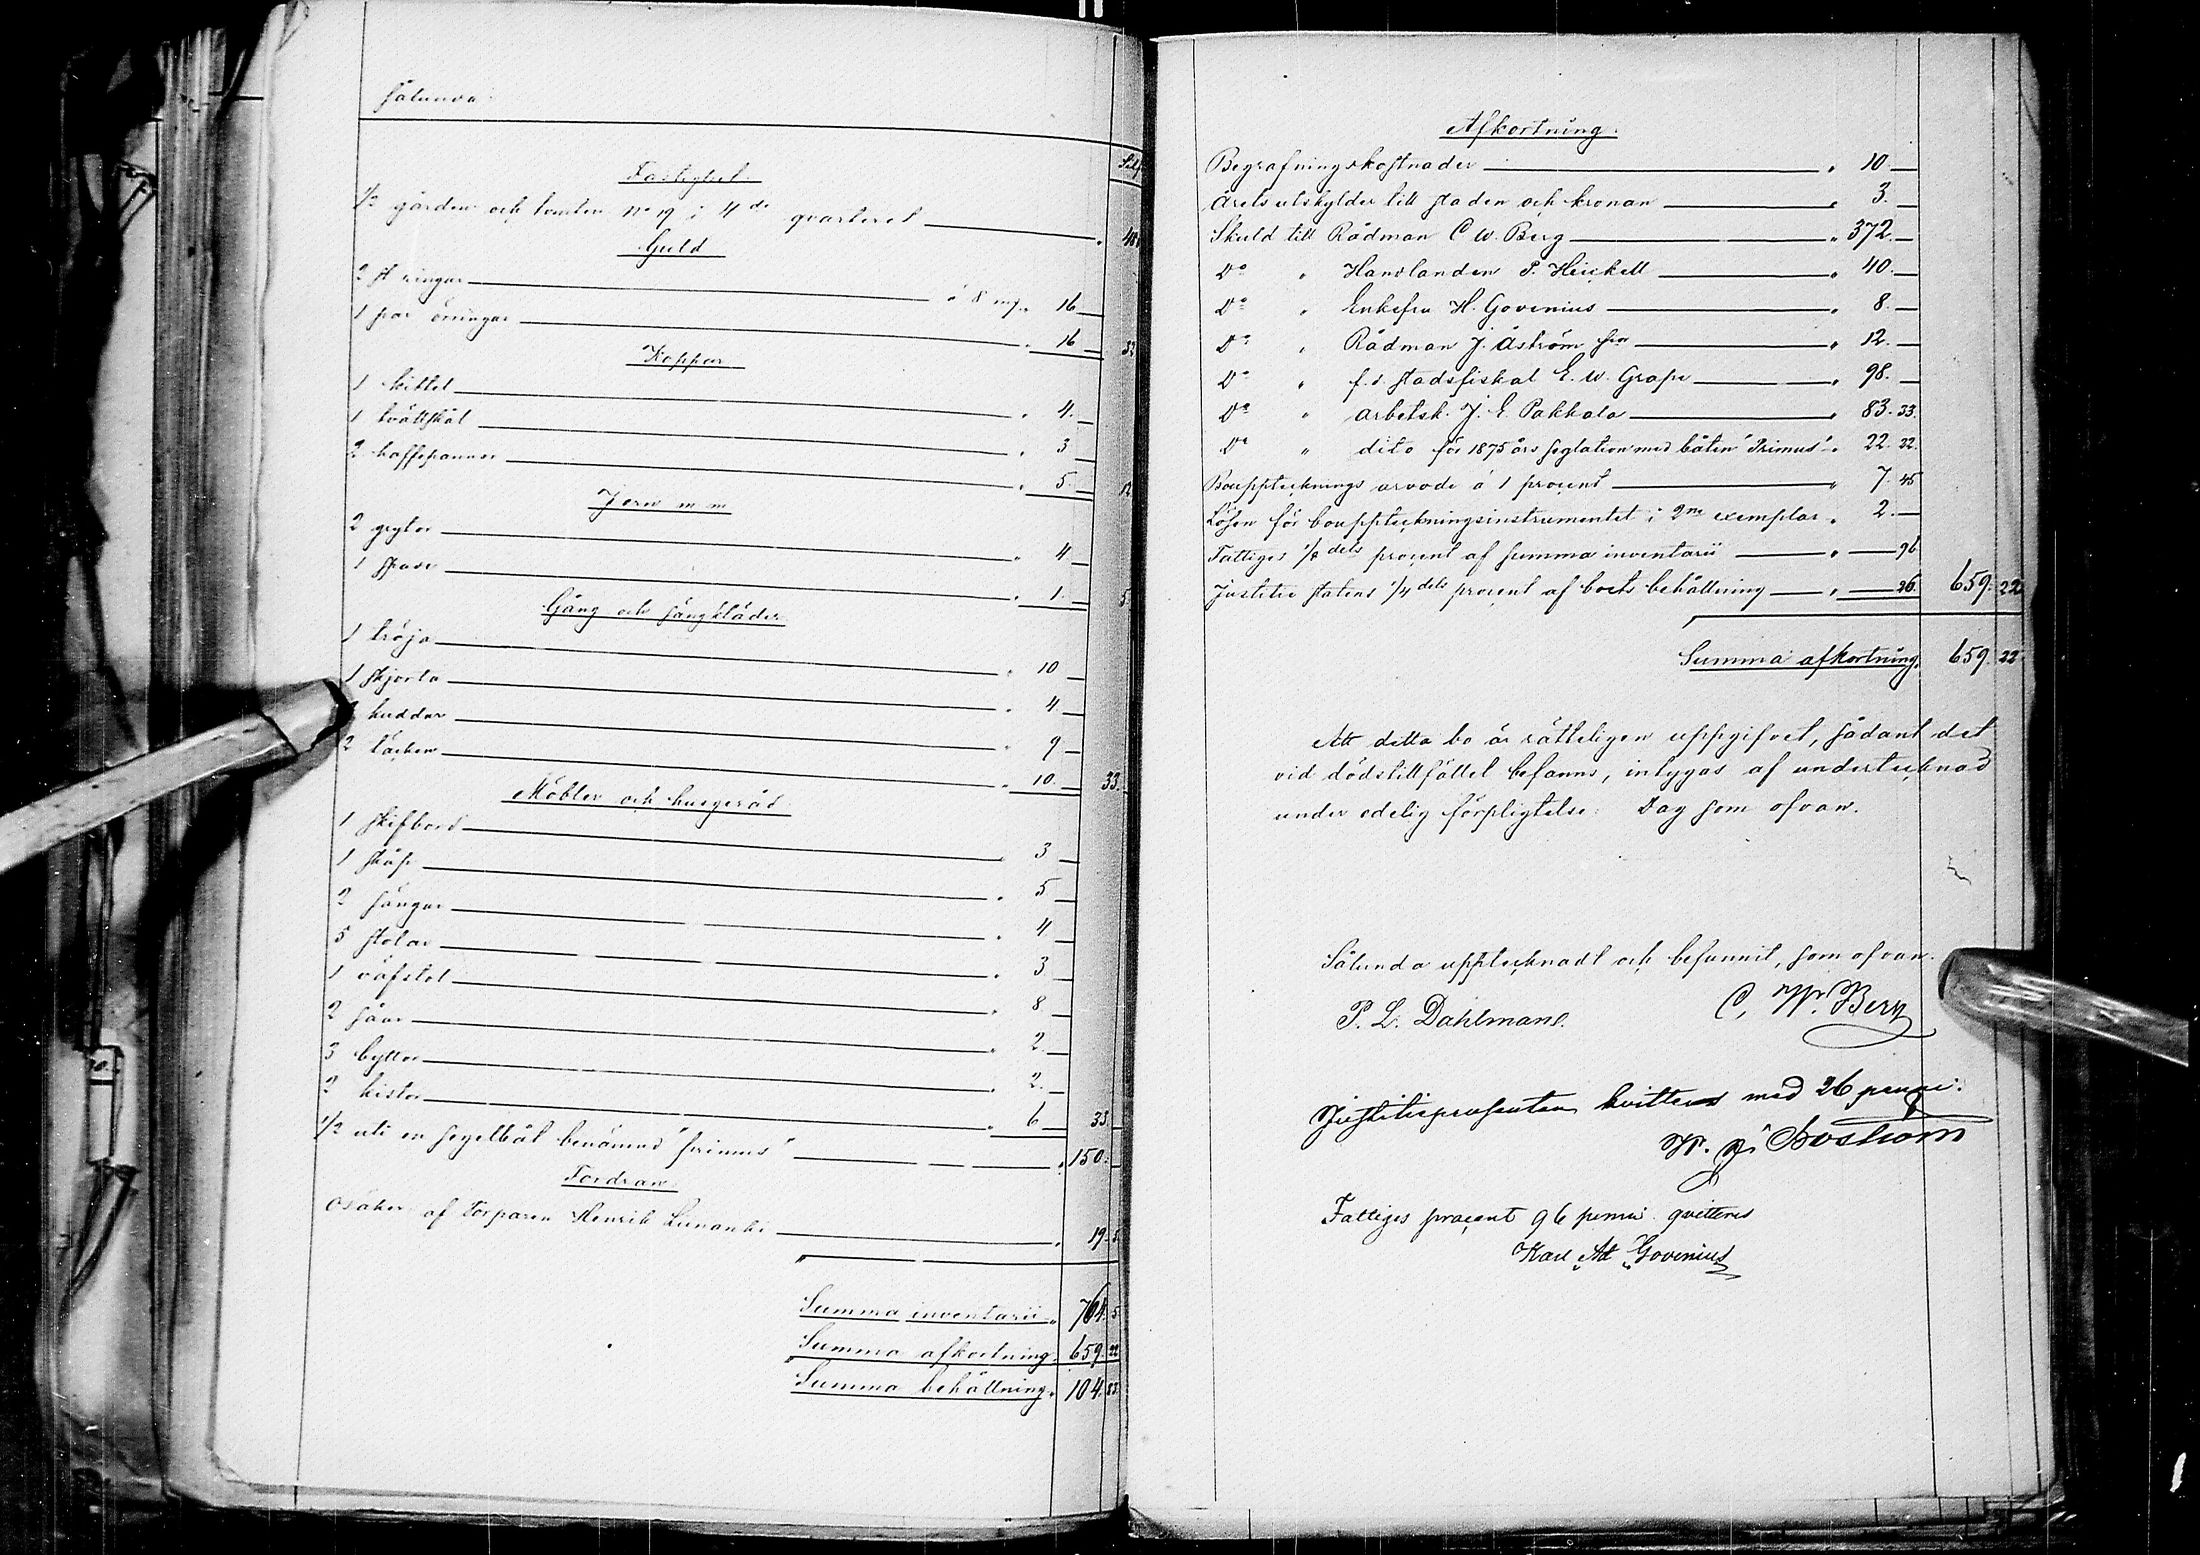 Sålunda:
Silf
Fastighet.
1/2 gården och tomten No 19 i 4de qvarteret 48
Guld
2 st ringar à 8 mf. " 16 —
1 par örringar " 16 — 32
Koppar
1 kittel " 4. —
1 tvättskål " 3 —
2 kaffepannor " 5. — 12
Jern m m
2 grytor " 4 —
1 spade " 1. — 5
Gång och sängkläder
1 tröja " 10 —
1 skjorta " 4 —
kuddar " 9 —
2 täcken " 10. — 33.
Möbler och husgeråd.
1 skifbord " 3 —
1 skåp " 5 —
2 sängar " 4 —
5 stolar " 3 —
1 väfstol " 8 —
2 såar " 2. —
3 byttor " 2. —
2 kistor " 6 — 33. —
1/2 uti en segelbåt benämnd "primus" " 150. —
Fordran.
Osäker af Torparen Henrik " 19. 5
Summa inventarii " 764. 5
Summa afkortning " 659. 22
Summa behållning " 104. 83.
Afkortning.
Begrafningskostnader " 10. —
Årets utskylder till staden och kronan " 3. —
Skuld till Rådman C W. Berg " 372. —
Do " Handlanden P. Heickell " 40. —
Do " Enkefru H. Govenius " 8. —
Do " Rådman J. Åström " 12. —
Do " f. d. stadsfiskal E. W. Grape " 98. —
Do " arbetsk. J. E. Pakkala " 83. 33.
Do " dito för 1875 års seglation med båten "Primus" " 22. 22.
Bouppteknings arvode à 1 procent " 7. 45
Lösen för bouppteckningsinstrumentet i 2ne exemplar " 2. —
Fattiges 1/8 dels procent af summa inventarii " — 96
Justitie statens 1/4 dels procent af boets behållning " — 26. 659. 22
Summa afkortning. 659. 22
Att detta bo är rätteligen uppgifvet, sådant det
vid dödstillfället befanns, intygas af undertecknad
under edelig förpligtelse. Dag som ofvan.
Sålunda upptecknadt och befunnit, som ofvan.
P. L. Dahlmans. C. W. Berg
Justitieprosenten kvitteras med 26 penni.
W. J. Boström
Fattiges procent 96 penni qvitteras
Karl Ad Govenius